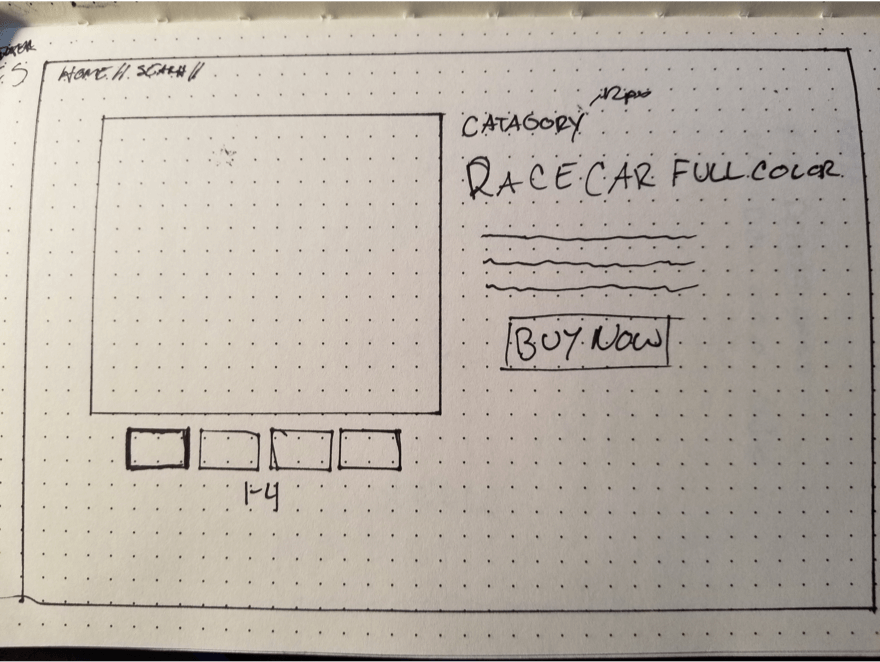 HOME // SEARH //
CATAGORY
RACE CAR FULL COLOR
BUY NOW
1-4